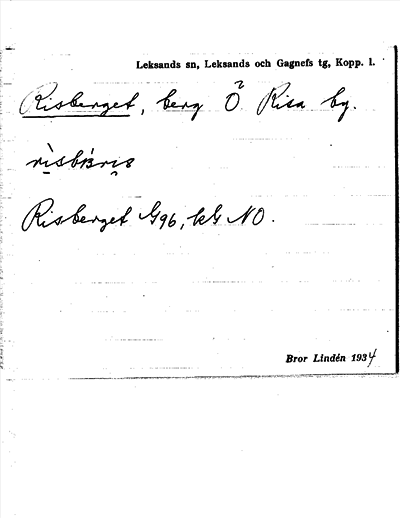 Leksands sn, Leksands och Gagnefs tg, Kopp. l.
Risberget, berg Ö Risa by.
Risberget G96, kG NO.
Bror Lindén 1934